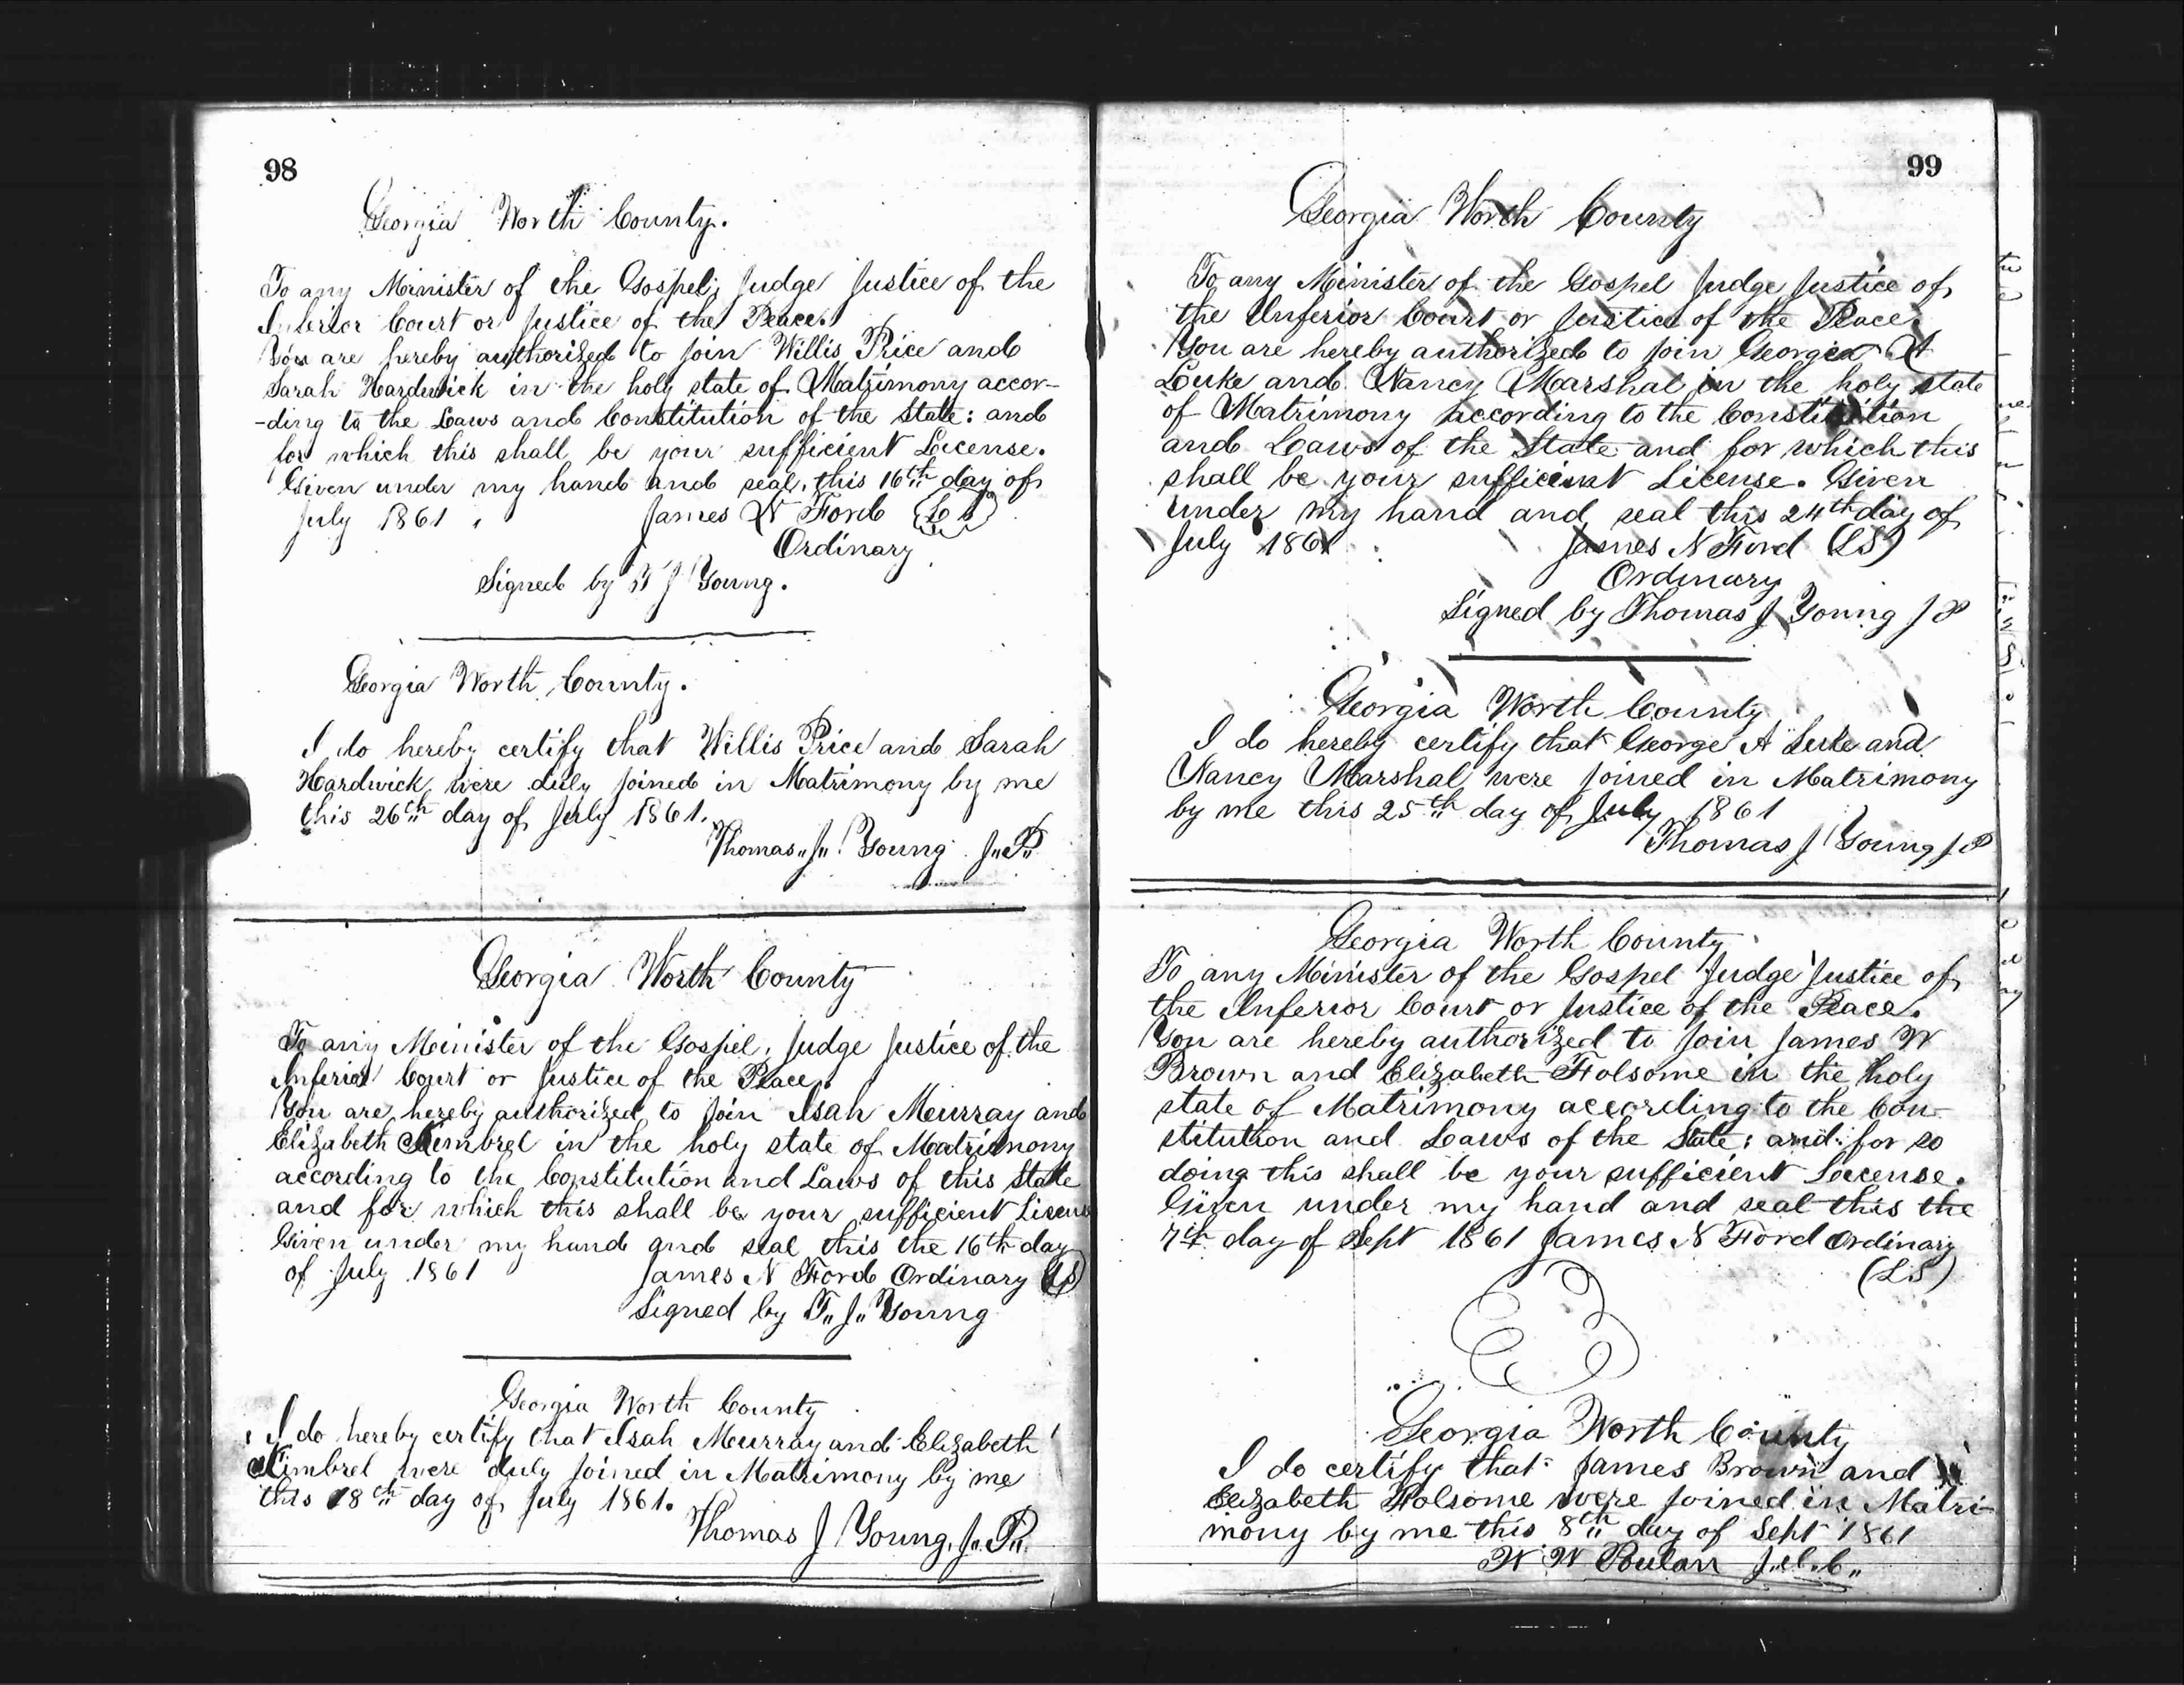 98
Georgia Worth County.
To any Minister of the Gospel; Judge Justice of the
Inferior Court or Justice of the Peace.
You are hereby authorized to join Willis Price and
Sarah Hardwick in the holy state of Matrimony accor-
-ding to the Laws and Constitution of the State: and
for which this shall be your sufficient License.
Given under my hand and seal, this 16th day of
July 1861. James N Ford (L S)
Ordinary
Signed by T J Young.
Georgia Worth County.
I do hereby certify that Willis Price and Sarah
Hardwick were duly joined in Matrimony by me
this 26th day of July 1861.
Thomas J. Young J.P.
Georgia Worth County
To any Minister of the Gospel, Judge Justice of the
Inferior Court or Justice of the Peace.
You are hereby authorized to join Isah Murray and
Elizabeth Kimbrel in the holy state of Matrimony
according to the Constitution and Laws of this State
and for which this shall be your sufficient
Given under my hand and seal this the 16th day
of July 1861 James N Ford Ordinary (LS)
Signed by T. J. Young
Georgia Worth County
I do hereby certify that Isah Murray and Elizabeth
Kimbrel were duly joined in Matrimony by me
this 18th day of July 1861.
Thomas J Young, J.P.
99
Georgia Worth County
To any Minister of the Gospel Judge Justice of
the Inferior Court or Justice of the Peace.
You are hereby authorized to join A
Luke and Nancy Marshal in the holy state
of Matrimony according to the Constitution
and Laws of the State and for which this
shall be your sufficient License. Given
under my hand and seal this 24th day of
July 1861 James N Ford (LS)
Ordinary
Signed by Thomas J Young J P
Georgia Worth County
I do hereby certify that George A Luke and
Nancy Marshal were joined in Matrimony
by me this 25th day of July 1861
Thomas J Young J.P
Georgia Worth County
To any Minister of the Gospel Judge Justice of
the Inferior Court or Justice of the Peace.
You are hereby authorized to join James W
Brown and Elizabeth Folsome in the holy
state of Matrimony according to the Con-
stitution and Laws of the State; and for so
doing this shall be your sufficient License.
Given under my hand and seal this the
7th day of Sept 1861 James N Ford Ordinary
(LS)
Georgia Worth County
I do certify that James Brown and
Elizabeth Folsome were joined in Matri-
mony by me this 8th day of Sept 1861
W W Poulan J.I.C.